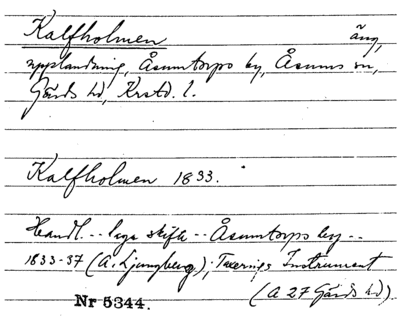 Kalfholmen äng,
upplandning, Åsumtorps by, Åsums sn,
Gärds hd, Krstd. l.
Kalfholmen 1833.
Handl. -- laga skifte -- Åsumtorps by --
1833-37 (A. Ljungberg); Taxerings Instrument
(A 27 Gärds hd)
Nr 5344.